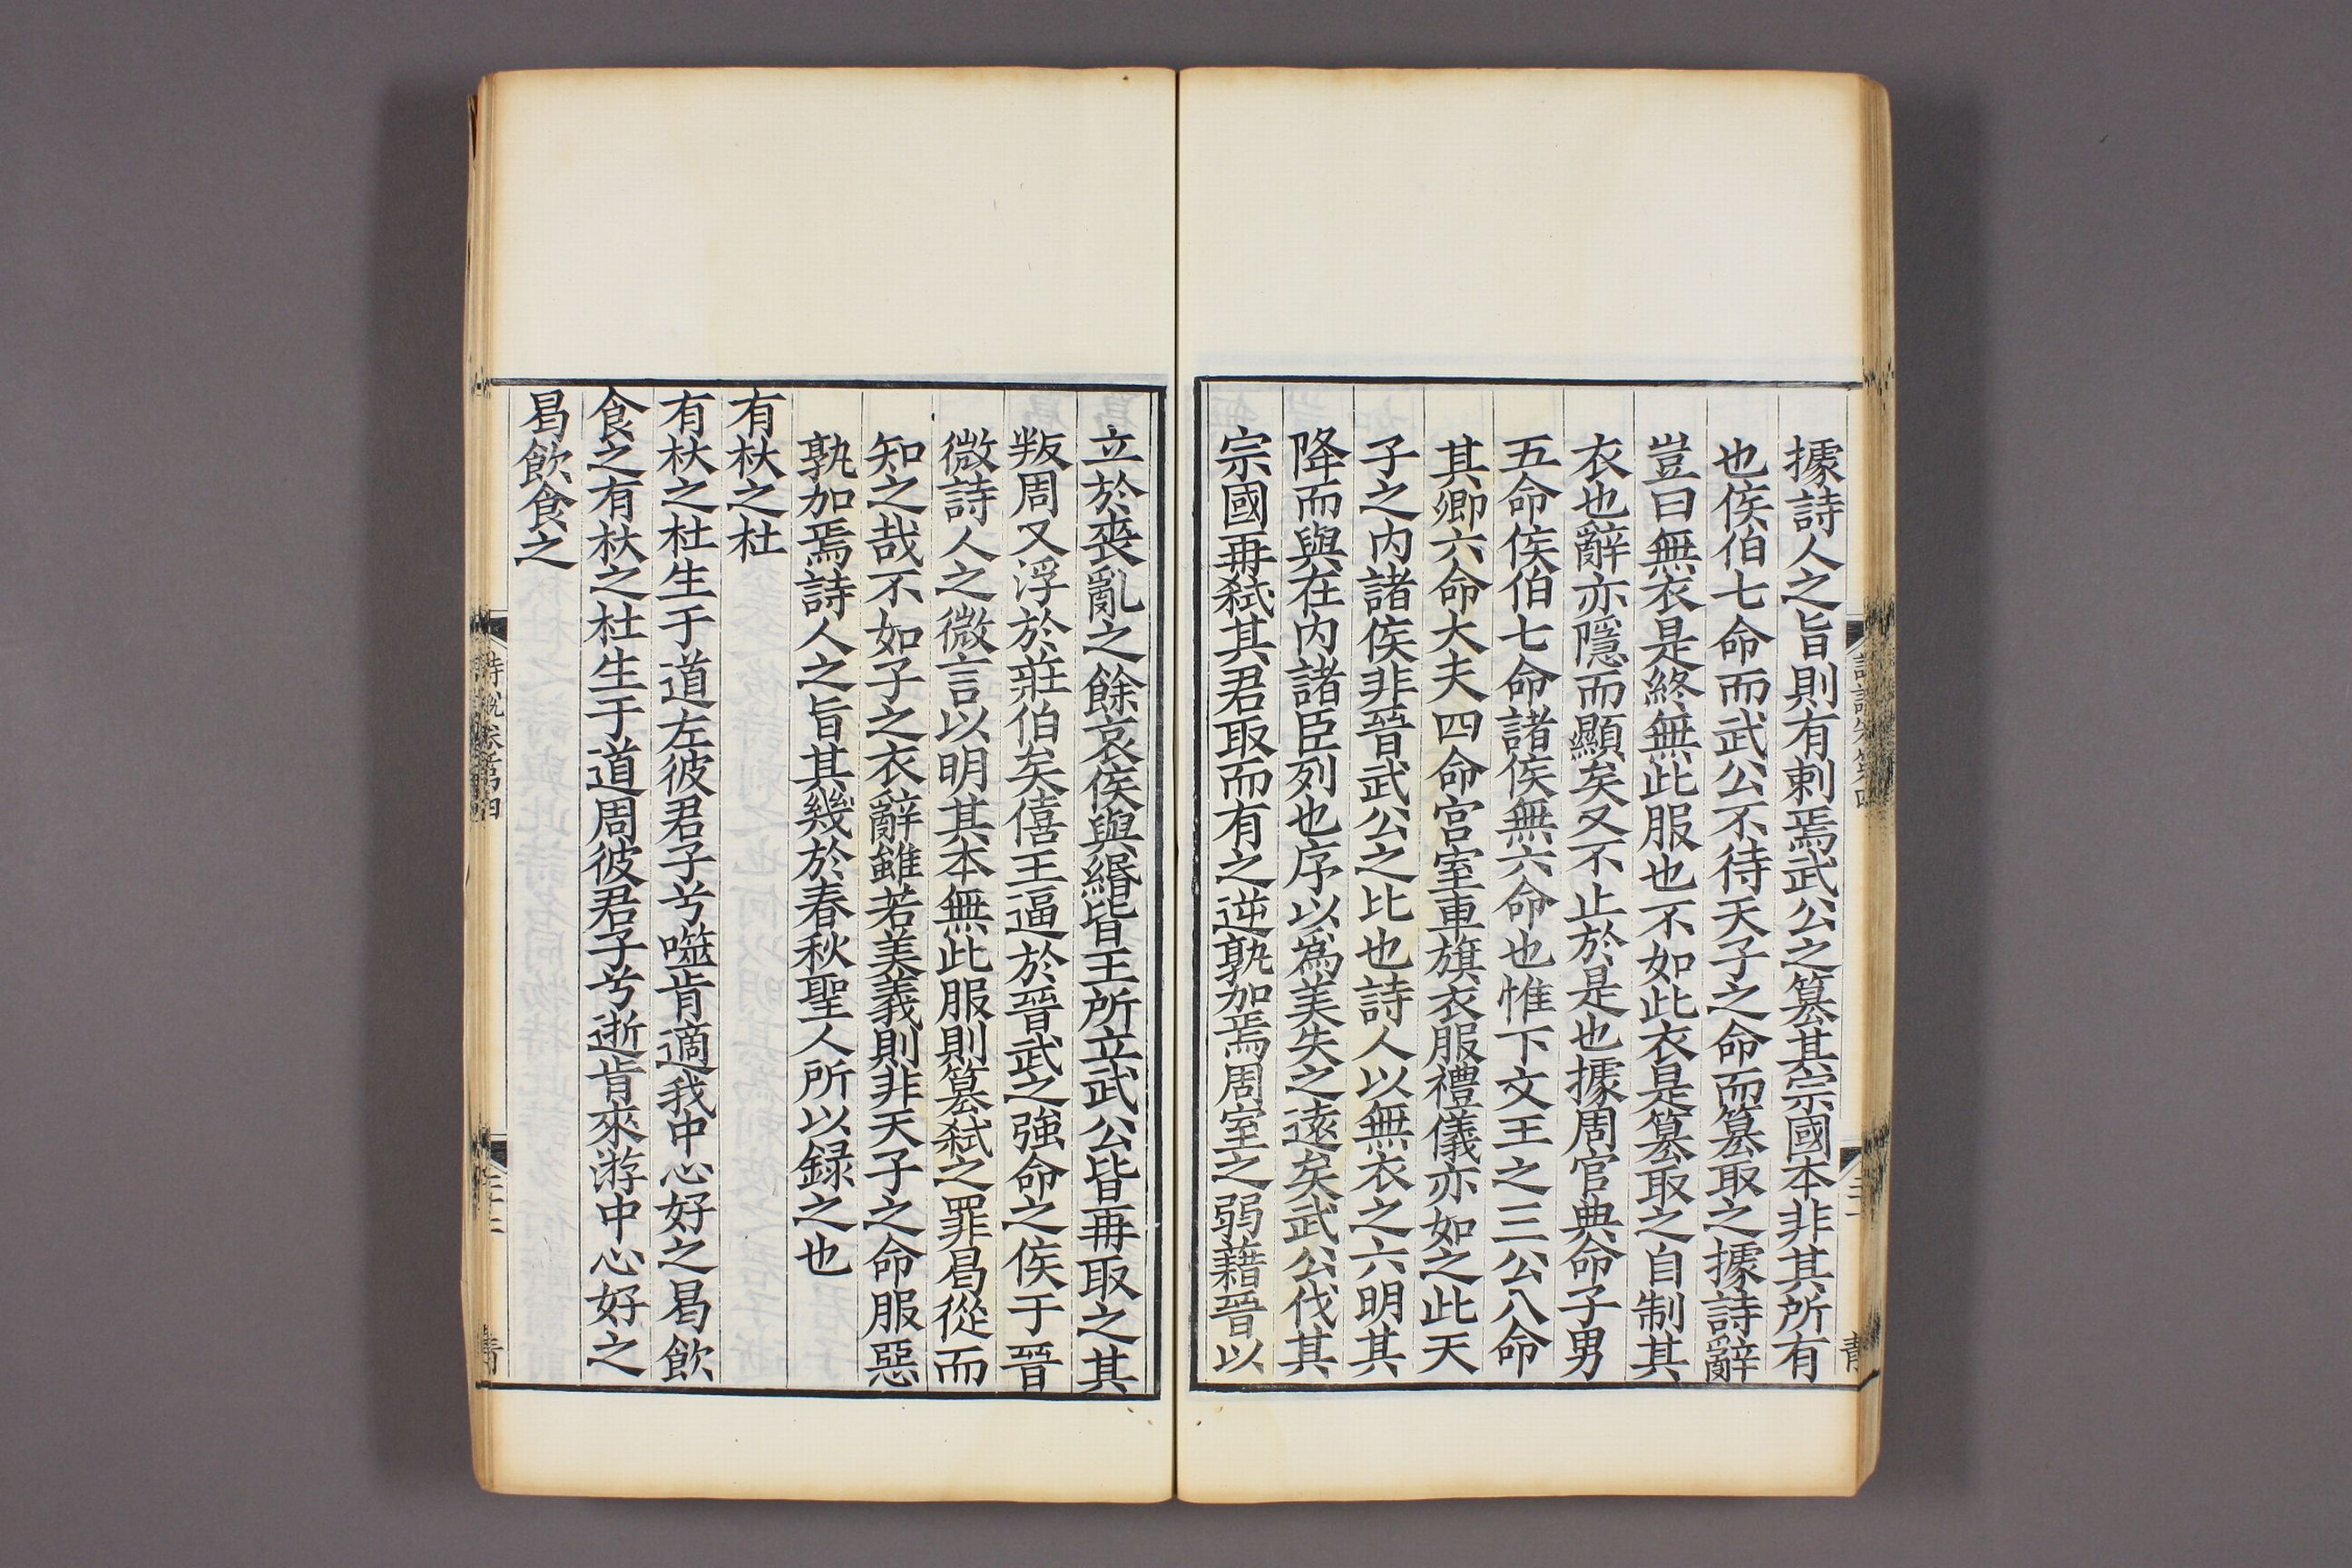 據詩人之旨則有刺焉武公之篡其宗國本非其所有
也侯伯七命而武公不待天子之命而篡取之據詩辭
豈曰無衣是終無此服也不如此衣是篡取之自制其
衣也辭亦隱而顯矣又不止於是也據周官典命子男
五命侯伯七命諸侯無六命也惟下文王之三公八命
其卿六命大夫四命宫室車旗衣服禮儀亦如之此天
子之内諸侯非晉武公之比也詩人以無衣之六明其
降而與在内諸臣列也序以爲美失之遠矣武公伐其
宗國再弑其君取而有之逆孰加焉周室之弱藉晉以
立於喪亂之餘哀侯與緡皆王所立武公皆再取之其
叛周又浮於莊伯矣僖王逼於晉武之強命之侯于晉
微詩人之微言以明其本無此服則篡弑之罪曷從而
知之哉不如子之衣辭雖若美義則非天子之命服惡
孰加焉詩人之旨其幾於春秋聖人所以録之也
有杕之杜
有杕之杜生于道左彼君子兮噬肯適我中心好之曷飲
食之有杕之杜生于道周彼君子兮逝肯來游中心好之
曷飲食之
詩說卷第四